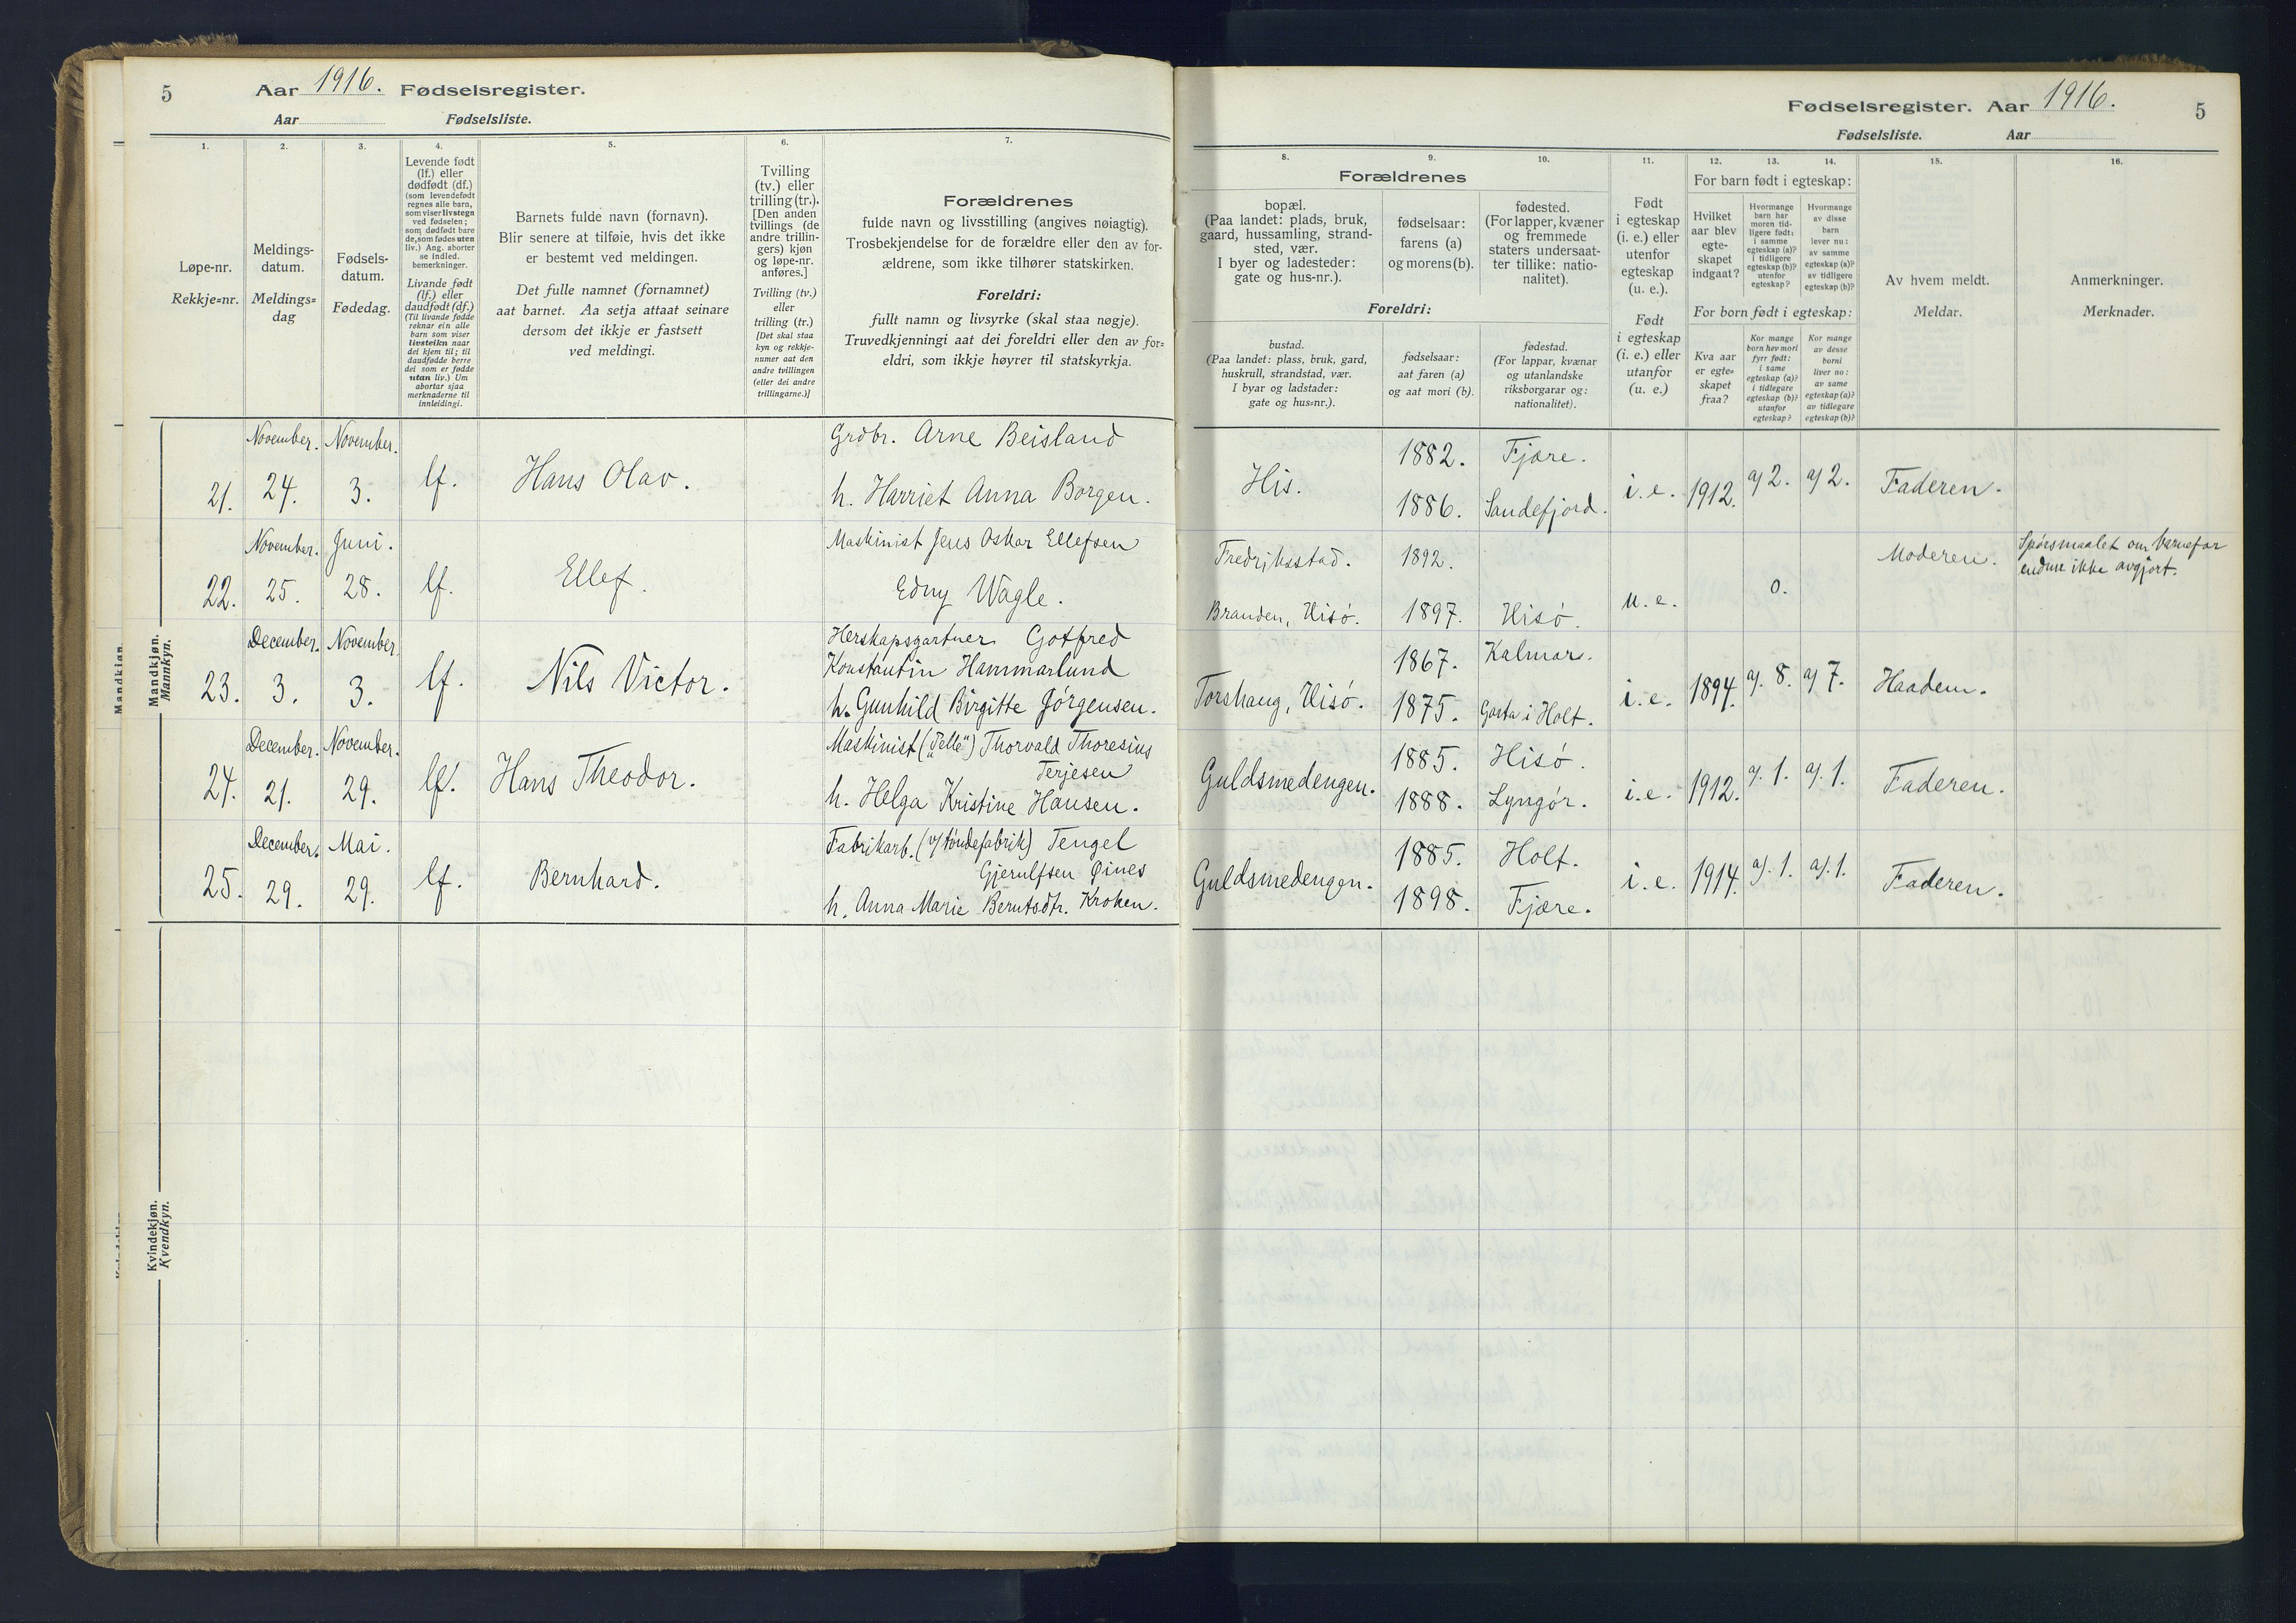 5
Aar 1916. Fødselsregister.
Aar Fødselsliste.
1.
2.
3.
4.
5.
6.
7.
Løpe-nr.
Rekkje=nr.
Meldings-
datum.
Meldings=
dag
Fødsels-
datum.
Fødedag.
Levende født
(lf.) eller
dødfødt (df.)
(som levendefødt
regnes alle barn,
som viser livstegn
ved fødselen;
som dødfødt bare
de, som fødes uten
liv.) Ang. aborter
se indled.
bemerkninger.
Livande født
(lf.) eller
daudfødt (df.)
(Til livande fødde
reknar ein alle
barn som viser
livsteikn naar
dei kjem til; til
daudfødde berre
dei som er fødde
utan liv.) Um
abortar sjaa
merknaderne til
innleidingi.
Barnets fulde navn (fornavn).
Blir senere at tilføie, hvis det ikke
er bestemt ved meldingen.
Det fulle namnet (fornamnet)
aat barnet. Aa setja attaat seinare
dersom det ikkje er fastsett
ved meldingi.
Tvilling
(tv.) eller
trilling (tr.).
[Den anden
tvillings (de
andre trillin-
gers) kjøn
og løpe-nr.
anføres.]
Tvilling (tv.)
eller
trilling (tr.)
[Det skal staa
kyn og rekkje-
numer aat den
andre tvillingen
(eller dei andre
trillingarne.)]
Forældrenes
fulde navn og livsstilling (angives nøiagtig).
Trosbekjendelse for de forældre eller den av for-
ældrene, som ikke tilhører statskirken.
Foreldri:
fullt namn og livsyrke (skal staa nøgje).
Truvedkjenningi aat dei foreldri eller den av for=
eldri, som ikkje høyrer til statskyrkja.
Mandkjøn.
Mannkyn.
November. November. Grdbr. Arne Beisland
21. 24. 3. lf. Hans Olav. h. Harriet Anna Borgen.
November. Juni. Maskinist Jens Oskar Ellefsen
22. 25. 28. lf. Ellef. Edny Wagle.
December. November. Herskapsgartner Gotfred
Konstantin Hammarlund
23. 3. 3. lf. Nils Victor. h. Gunhild Birgitte Jörgensen.
December. November. Maskinist („Telle") Thorvald Thoresius
Terjesen
24. 21. 29. lf. Hans Theodor. h. Helga Kristine Hansen.
December. Mai. Fabrikarb. (v/töndefabrik) Tengel
Gjerulfsen Øines
25. 29. 29. lf. Bernhard. h. Anna Marie Berntsdtr. Kroken.
Kvindekjøn.
Kvendkyn.
Fødselsregister. Aar 1916. 5
Fødselsliste. Aar
8.
9.
10.
11.
12.
13.
14.
15.
16.
Forældrenes
bopæl.
(Paa landet: plads, bruk,
gaard, hussamling, strand-
sted, vær.
I byer og ladesteder:
gate og hus-nr.).
fødselsaar:
farens (a)
og morens (b).
fødested.
(For lapper, kvæner
og fremmede
staters undersaat-
ter tillike: natio-
nalitet).
Foreldri:
bustad.
(Paa landet: plass, bruk, gard,
huskrull, strandstad, vær.
I byar og ladstader:
gate og hus=nr.).
fødselsaar:
aat faren (a)
og aat mori (b).
fødestad.
(For lappar, kvænar
og utanlandske
riksborgarar og:
nationalitet).
Født
i egteskap
(i. e.) eller
utenfor
egteskap
(u. e.).
Født
i egteskap
(i. e.) eller
utanfor
(u. e.)
For barn født i egteskap:
Hvilket
aar blev
egte-
skapet
indgaat?
Hvormange
barn har
moren tid-
ligere født:
i samme
egteskap (a)?
i tidligere
egteskap (b)?
utenfor
egteskap?
Hvormange
av disse
barn
lever nu:
av samme
egteskap (a)?
av tidligere
egteskap (b)?
For born født i egteskap:
Kva aar
er egte=
skapet
fraa?
Kor mange
born hev mori
fyrr født:
i same
egteskap (a)?
i tidlegare
egteskap (b)?
utanfor
egteskap?
Kor mange
av desse
borni
liver no:
av same
egteskap (a)?
av tidlegare
egteskap (b)?
Av hvem meldt.
Meldar.
Anmerkninger.
Merknader.
His. 1882. Fjære.
1886. Sandefjord. i. e. 1912. a) 2. a) 2. Faderen.
Fredriksstad. 1892. Moderen. Spörsmaalet om barnefar
endnu ikke avgjort.
Branden, Hisö. 1897. Hisö. u. e. 0.
1867. Kalmar.
Torshaug, Hisö. 1875. Gosta i Holt. i. e. 1894. a). 8. a) 7. Haaden.
Guldsmedengen. 1885. Hisö.
1888. Lyngör. i. e. 1912. a). 1. a). 1. Faderen.
Guldsmedengen. 1885. Holt.
1898. Fjære. i. e. 1914. a). 1. a). 1. Faderen.